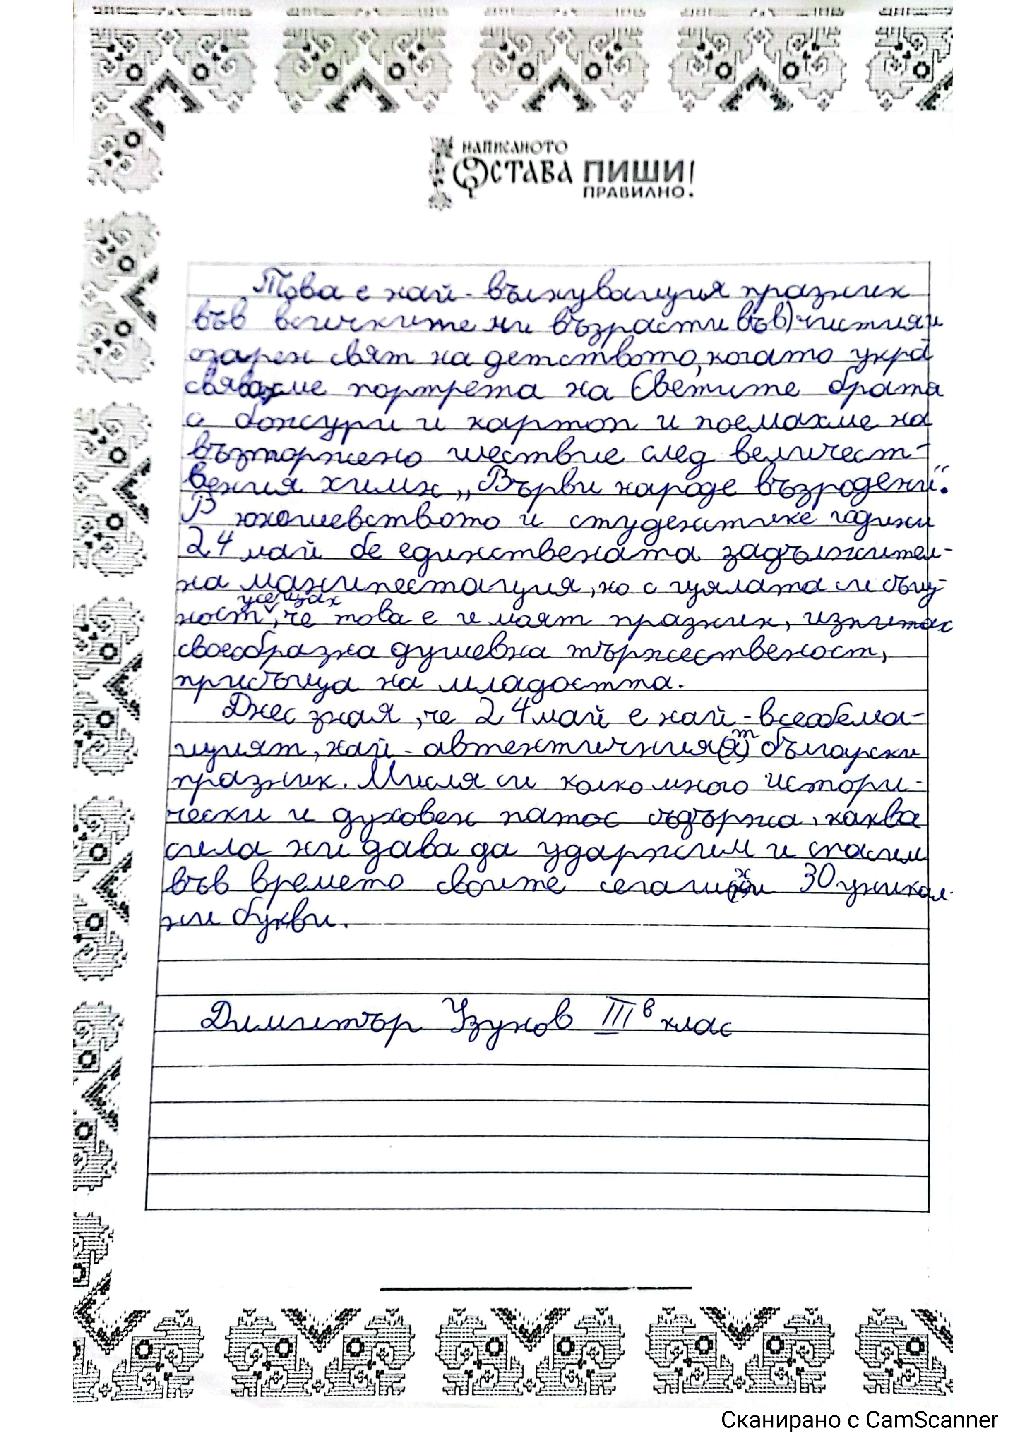 НАПИСАНОТО
ОСТАВА ПИШИ!
ПРАВИЛНО!
Това е най-вълнуващия празник
във всичките ни възрасти във) чистия и
озарен свят на детството, когато укра
свявахме портрета на Светите братя
с божури и картон и поемахме на
възторжено шествие след величест-
вения химн „Върви народе възродени".
В юношевството и студентске години
24 май бе единствената задължител-
на манипестация, но с цялата си същ-
усещах
ност, че това е и моят празник, изпитах
своеобразна душевна тържественост,
присъща на младостта.
Днес зная, че 24 май е най-всеобема-
щият, най-автентичния(я)т български
празник. Мисля си колко много истори-
чески и духовен патос съдържа, каква
сила ни дава да удържим и спасим
във времето своите сегашни 30 уникал-
ни букви.
Димитър Узунов III в клас
Сканирано с CamScanner